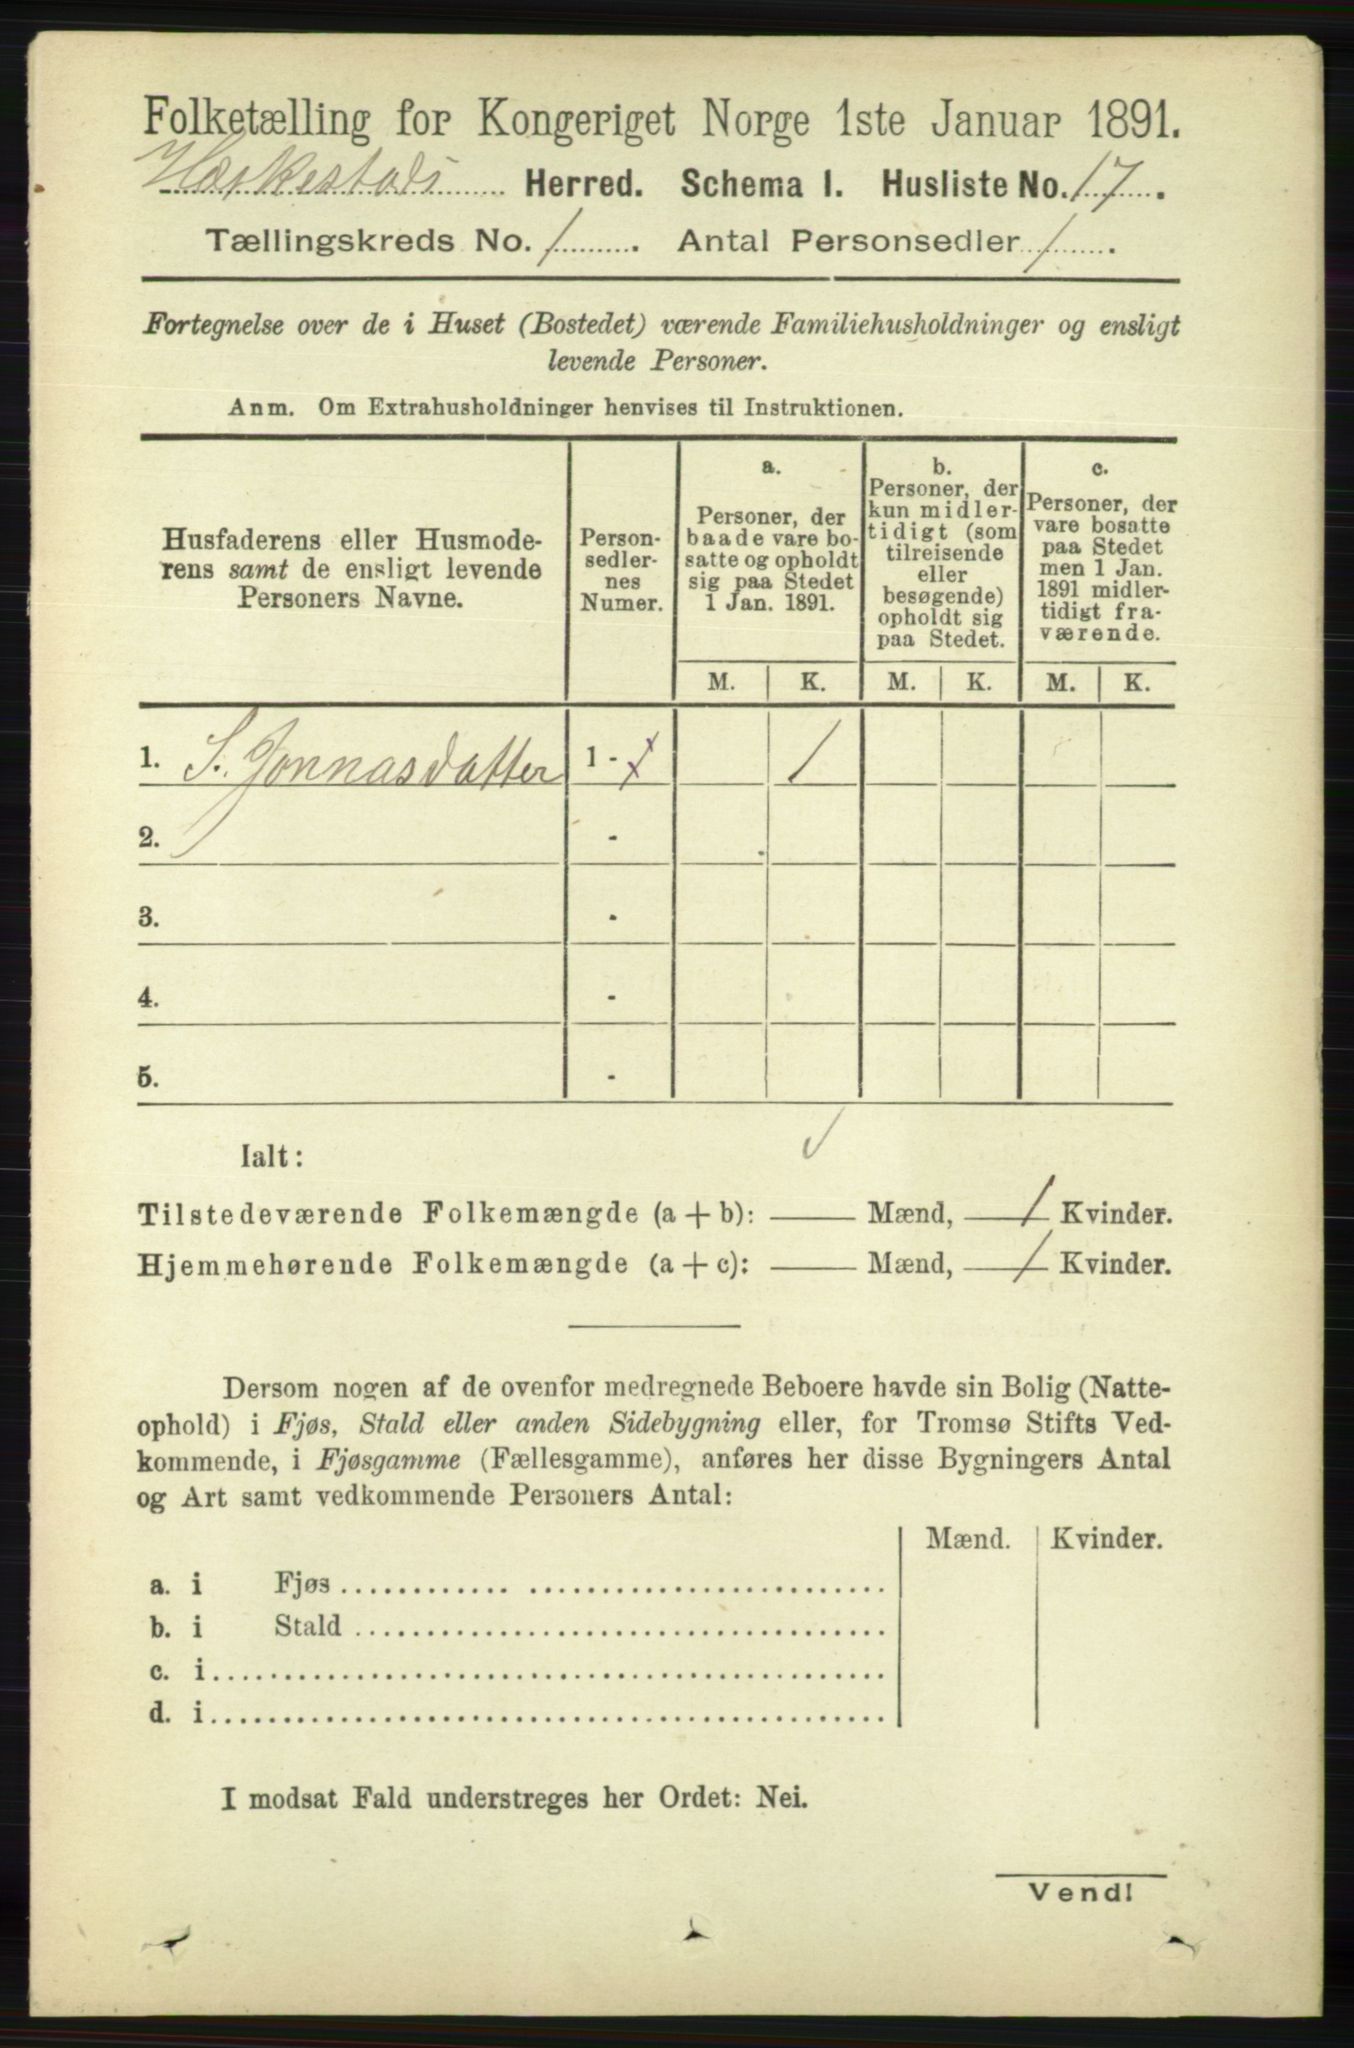 Folketælling for Kongeriget Norge 1ste Januar 1891.
Herred. Schema I. Husliste No. 17.
Tællingskreds No. 1. Antal Personsedler 1.
Fortegnelse over de i Huset (Bostedet) værende Familiehusholdninger og ensligt
levende Personer.
Anm. Om Extrahusholdninger henvises til Instruktionen.
Husfaderens eller Husmode-
rens samt de ensligt levende
Personers Navne.
Person-
sedler-
nes
Numer.
a.
Personer, der
baade vare bo-
satte og opholdt
sig paa Stedet
1 Jan. 1891.
b.
Personer, der
kun midler-
tidigt (som
tilreisende
eller
besøgende)
opholdt sig
paa Stedet.
c.
Personer, der
vare bosatte
paa Stedet
men 1 Jan.
1891 midler-
tidigt fra-
værende.
M. K. M. K. M. K.
1. S. Jonnasdatter 1 - 1
2. -
3. -
4. -
5. -
Ialt:
Tilstedeværende Folkemængde (a + b): Mænd, 1 Kvinder.
Hjemmehørende Folkemængde (a + c): Mænd, 1 Kvinder.
Dersom nogen af de ovenfor medregnede Beboere havde sin Bolig (Natte-
ophold) i Fjøs, Stald eller anden Sidebygning eller, for Tromsø Stifts Ved-
kommende, i Fjøsgamme (Fællesgamme), anføres her disse Bygningers Antal
og Art samt vedkommende Personers Antal:
Mænd. Kvinder.
a. i Fjøs
b. i Stald
c. i
d. i
I modsat Fald understreges her Ordet: Nei.
Vend!